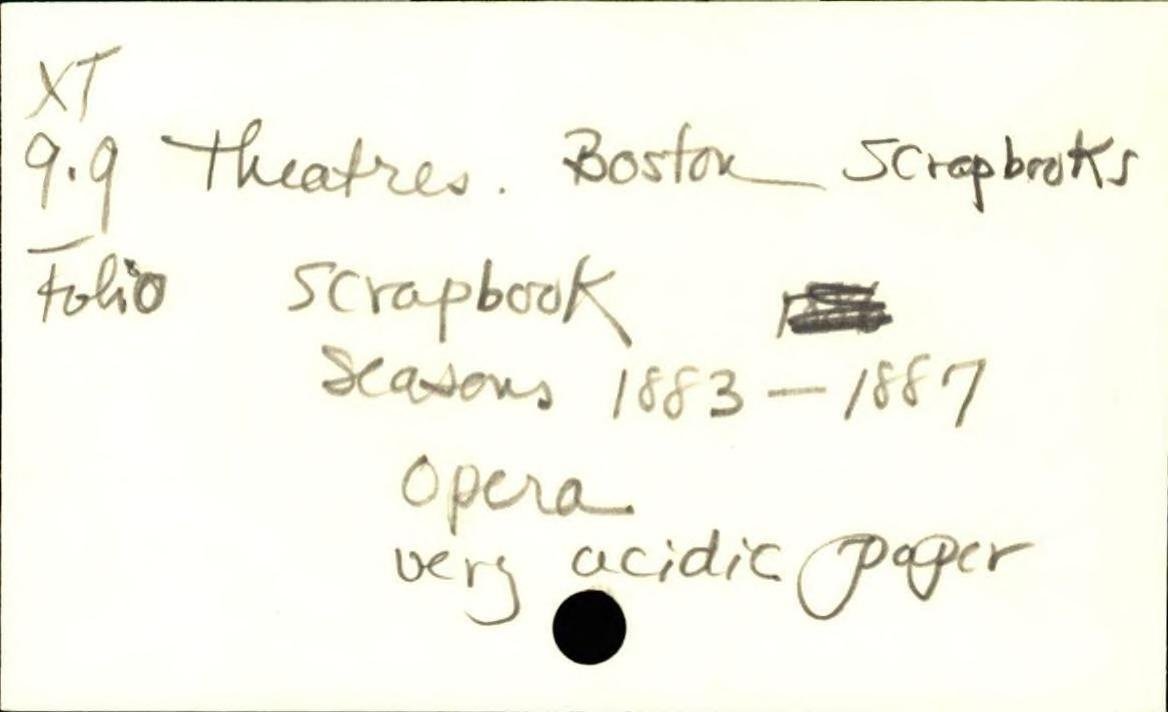 XT
9.9 Theatres. Boston Scrapbooks
Folio Scrapbook
Seasons 1883 — 1887
Opera
very acidic paper